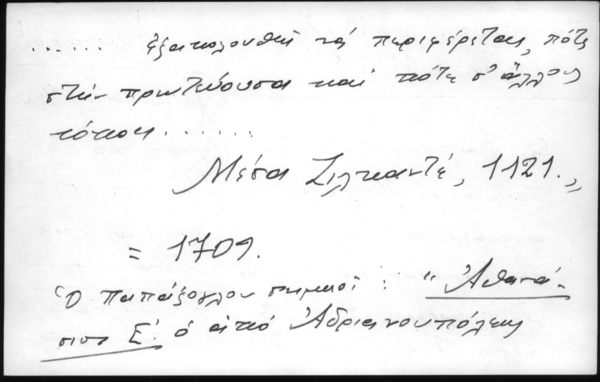 ...... ἐξακολουθεῖ νά περιφέρεται, πότε
στήν πρωτεύουσα καί πότε σ' ἄλλους
τόπους......
Μέσα Ζιλκαντέ, 1121.,
= 1709.
Ὁ Παπάζογλου σημειοῖ: "Ἀθανά-
σιος Ε΄. ὁ ἀπό Ἀδριανουπόλεως